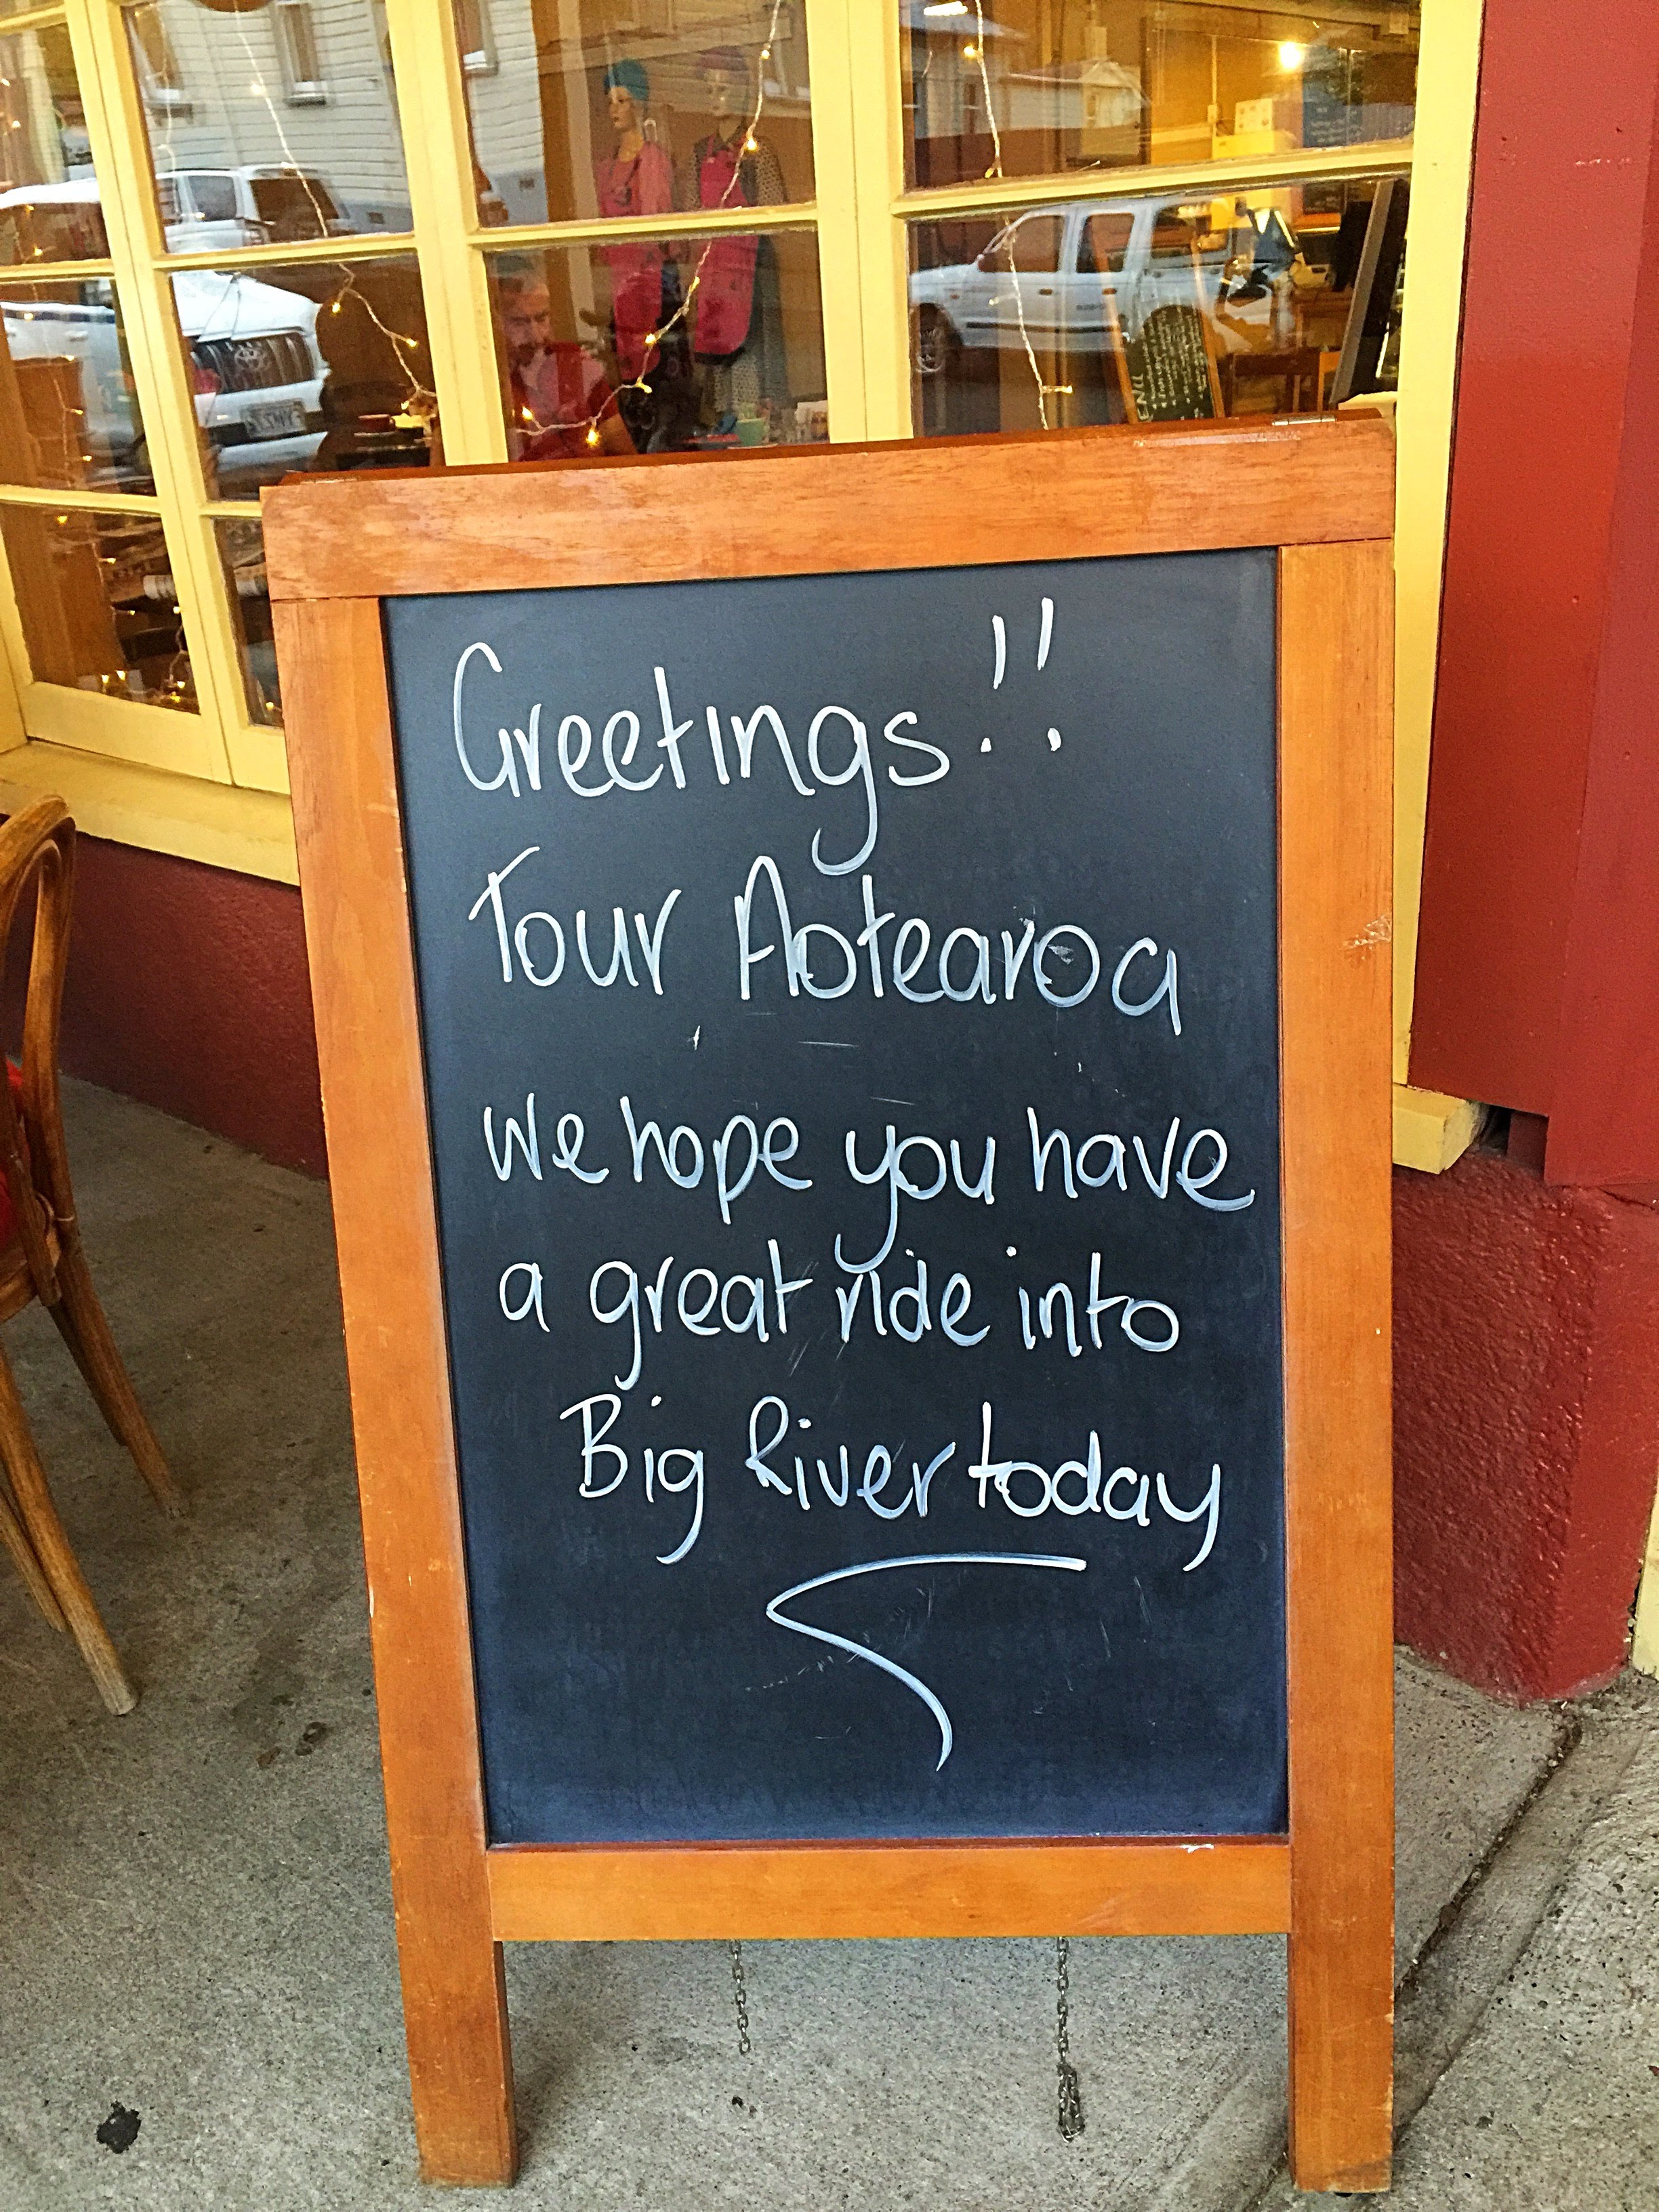 Greetings!!
Tour Aotearoa
We hope you have
a great ride into
Big River today